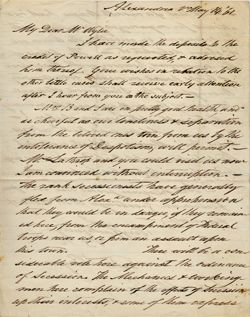 Alexandria Va May 14/61
My Dear Mr Wylie
I have made the deposite to the
credit of Powell as requested, & advised
him thereof. Your wishes in relation to the
other little matter shall receive early attention
after I hear from you on the subject.
Mrs B and I are in pretty good health, and
as cheerful as our loneliness & separation
from the beloved ones torn from us by the
intolerance of Despotism, will permit.
Mr Lathrop and you could visit us now
I am convinced without interruption.
The rank Secessionists have generally
fled from Alexa under apprehension
that they would be in danger, if they remain
here, from the encampment of Federal
troops near us, or from an assault upon
the town. There will be a con-
siderable vote here against the ordinance
of Secession. The Mechanics & working-
men here complain of the effect of Secession
upon their interests, & some of them express